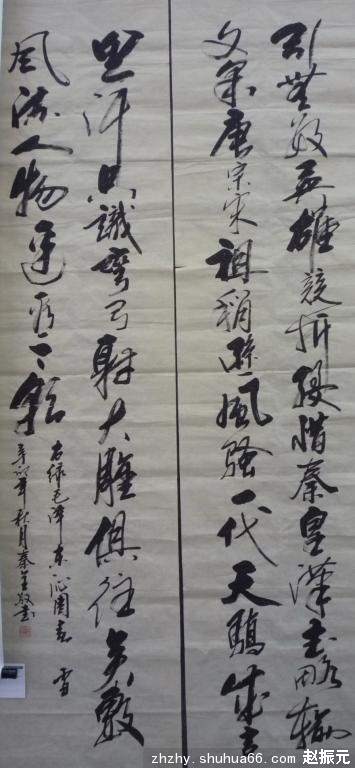 引無數英雄競折腰惜秦皇漢武略輸
文采唐宗宋祖稍遜風騷一代天驕成吉
思汗只識彎弓射大雕俱往矣數
風流人物還看今朝
右録毛澤东沁園春 雪
辛卯年秋月秦书
zhzhy.shuhua66.com 赵振元